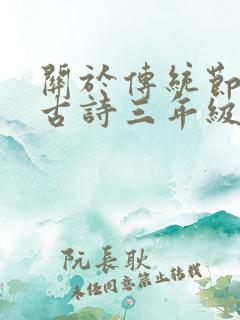 關於傳統節
古詩三年級
阮長耿
未經同意禁止轉載